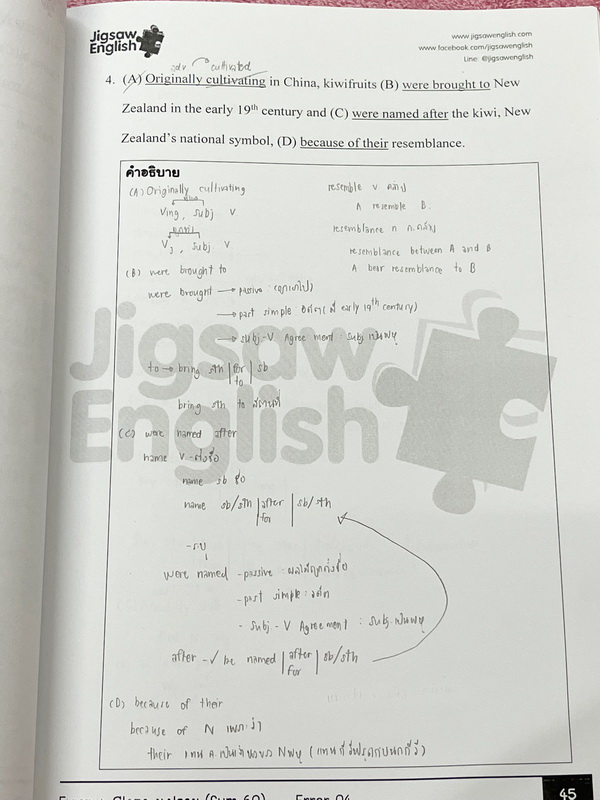 Jigsaw
English
www.jigsawenglish.com
www.facebook.com/jigsawenglish
Line: @jigsawenglish
adv cultivated
4. (A) Originally cultivating in China, kiwifruits (B) were brought to New
Zealand in the early 19th century and (C) were named after the kiwi, New
Zealand's national symbol, (D) because of their resemblance.
คำอธิบาย
(A) Originally cultivating
Ving, subj V
V3, subj V
resemble v คล้าย
A resemble B.
resemblance n
resemblance between A and B
A bear resemblance to B
(B) were brought to
were brought → passive :
→ past simple อดีต ( early 19th century)
→ subj-V Agreement : subj เป็นพหู
to → bring sth | for | sb
to
bring sth to สถานที่
Jigsaw
English
(C) were named after
name V - ตั้งชื่อ
name sb ชื่อ
name sb/sth | after | sb/sth
for
were named - passive : ผลไม้ถูกตั้งชื่อ
- past simple : อดีต
- subj - V Agreement : subj. เป็นพหู
after - ✓ be named | after | sb/sth
for
(D) because of their
because of N เพราะว่า
their แทน
45